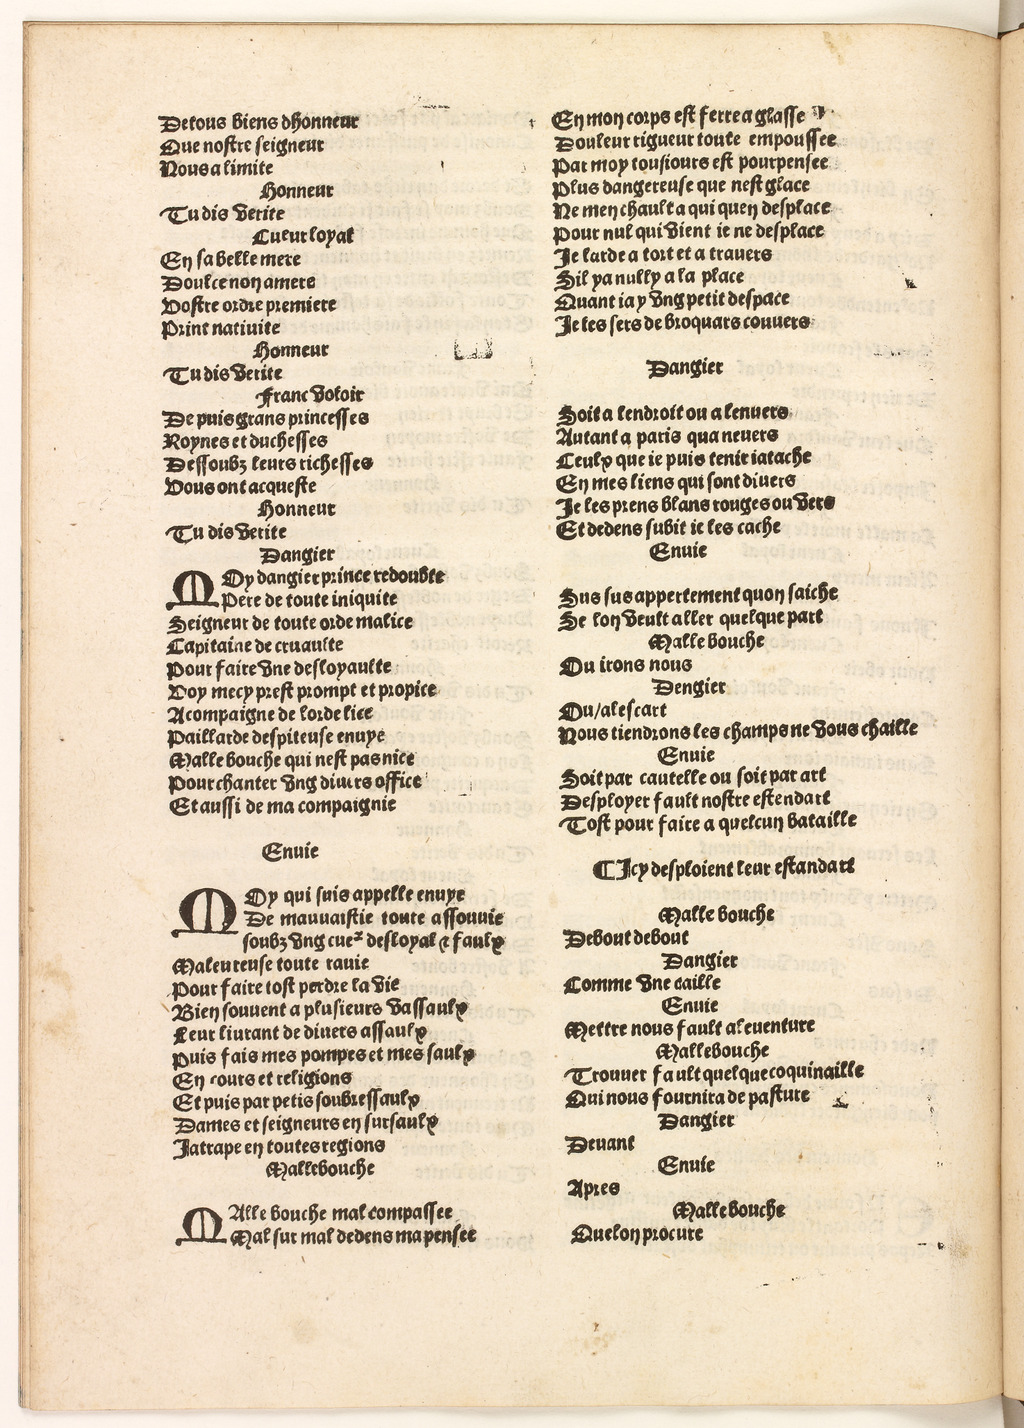 De tous biens dhonneur
Que nostre seigneur
Nous a limite
Honneur
Tu dis verite
Cueur loyal
En sa belle mere
Doulce non amere
Vostre ordre premiere
Print natiuite
Honneur
Tu dis verite
Franc voloir
De puis grans princesses
Roynes et duchesses
Dessoubz leurs richesses
Vous ont acqueste
Honneur
Tu dis verite
Dangier
MOy dangier prince redoubte
Pere de toute iniquite
Seigneur de toute orde malice
Capitaine de cruaulte
Pour faire vne desloyaulte
Voy mecy prest prompt et propice
Acompaigne de lorde lice
Paillarde despiteuse enuye
Malle bouche qui nest pas nice
Pour chanter vng diuers office
Et aussi de ma compaignie
Enuie
MOy qui suis appelle enuye
De mauuaistie toute assouuie
soubz vng cuer desloyal & faulx
Maleureuse toute rauie
Pour faire tost perdre la vie
Bien souuent a plusieurs vassaulx
Leur liurant de diuers assaulx
Puis fais mes pompes et mes saulx
En cours et religions
Et puis par petis soubressaulx
Dames et seigneurs en sursaulx
Jatrape en toutes regions
Mallebouche
MAlle bouche mal compassee
Mal sur mal dedens ma pensee
En mon corps est ferre a glasse
Douleur rigueur toute empoussee
Par moy tousiours est pourpensee
Plus dangereuse que nest glace
Ne men chault a qui quen desplace
Pour nul qui vient ie ne desplace
Je larde a tort et a trauers
Sil ya nully a la place
Quant iay vng petit despace
Je les sers de broquars couuers
Dangier
Soit a lendroit ou a lenuers
Autant a paris qua neuers
Ceulx que ie puis tenir iatache
En mes liens qui sont diuers
Je les prens blans rouges ou vers
Et dedens subit ie les cache
Enuie
Sus sus appertement quon saiche
Se lon veult aller quelque part
Malle bouche
Ou irons nous
Dengier
Ou/a lescart
Nous tiendrons les champs ne vous chaille
Enuie
Soit par cautelle ou soit par art
Desployer fault nostre estendart
Tost pour faire a quelcun bataille
¶ Icy desploient leur estandart
Malle bouche
Debout debout
Dangier
Comme vne caille
Enuie
Mettre nous fault a leuenture
Mallebouche
Trouuer fault quelque coquinaille
Qui nous fournira de pasture
Dangier
Deuant
Enuie
Apres
Malle bouche
Que lon procure